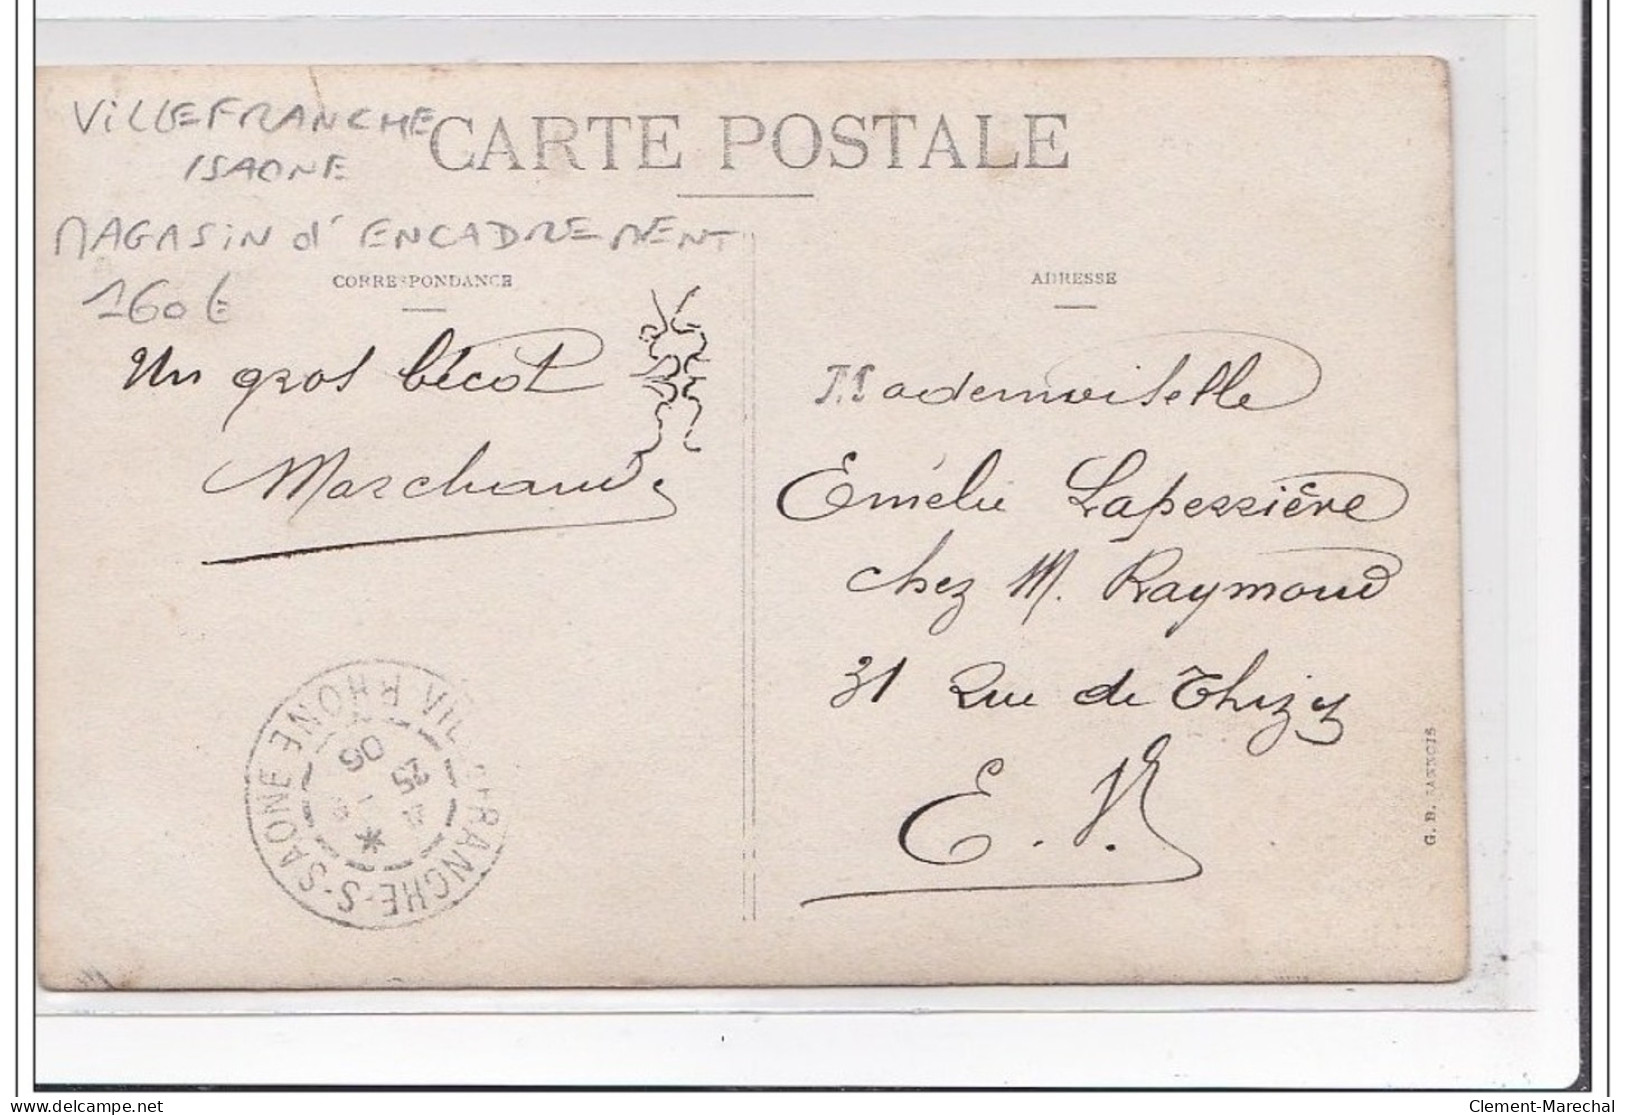 VILLEFRANCHE
/SAONE
MAGASIN d'ENCADREMENT
160€
CARTE POSTALE
CORRESPONDANCE
ADRESSE
Un gros bécot
Marchand
Mademoiselle
Emélie Laperrière
chez M. Raymond
31 Rue de Thizy
E. V.
VILLEFRANCHE-S-SAONE RHONE
25
06
Clement-Marechal
delcampe.net